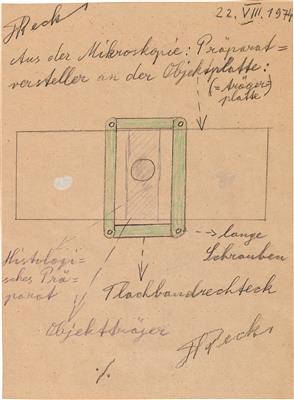 HPeck
22. VIII. 1974
Aus der Mikroskopie: Präparat=
versteller an der Objektplatte:
(=träger=
platte)
--> lange
Schrauben
Histologi=
sches Prä=
parat
Flachbandrechteck
Objektträger
HPeck
·/.